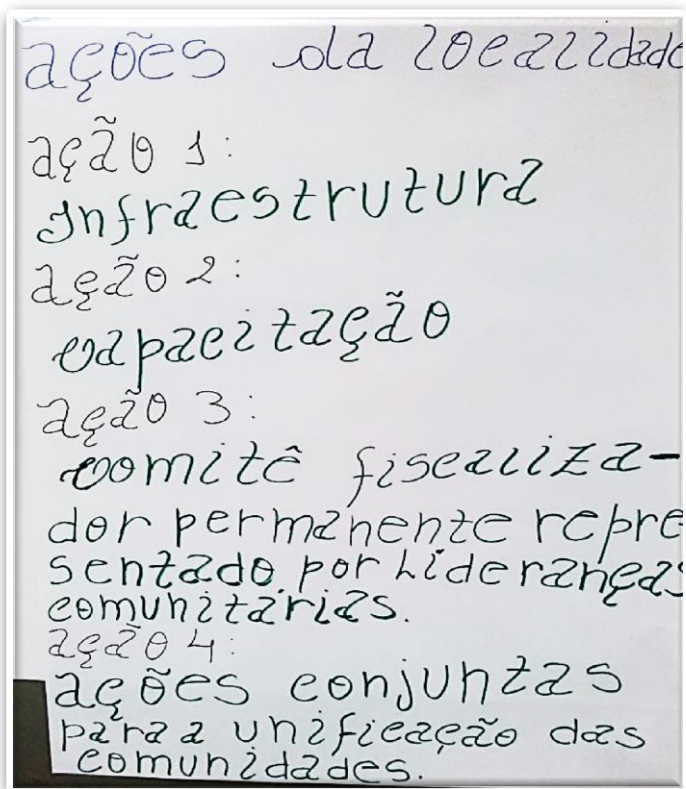 ações da localidade
ação 1:
Infraestrutura
ação 2:
capacitação
ação 3:
comitê fiscaliza-
dor permanente repre
sentado por Lideranças
comunitárias.
ação 4:
ações conjuntas
para a unificação das
comunidades.